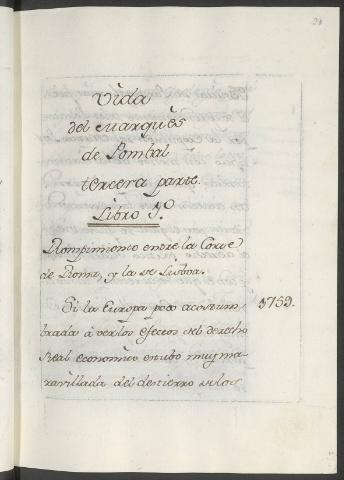 Vida
del Marqués
de Pombal
tercera parte.
Libro 5.º
Rompimiento entre la Corte
de Roma, y la de Lisboa.
Si la Europa poco acostum-
brada à ver los efectos del derecho
Real economico estubo muy ma-
ravillada del destierro de los
1759.